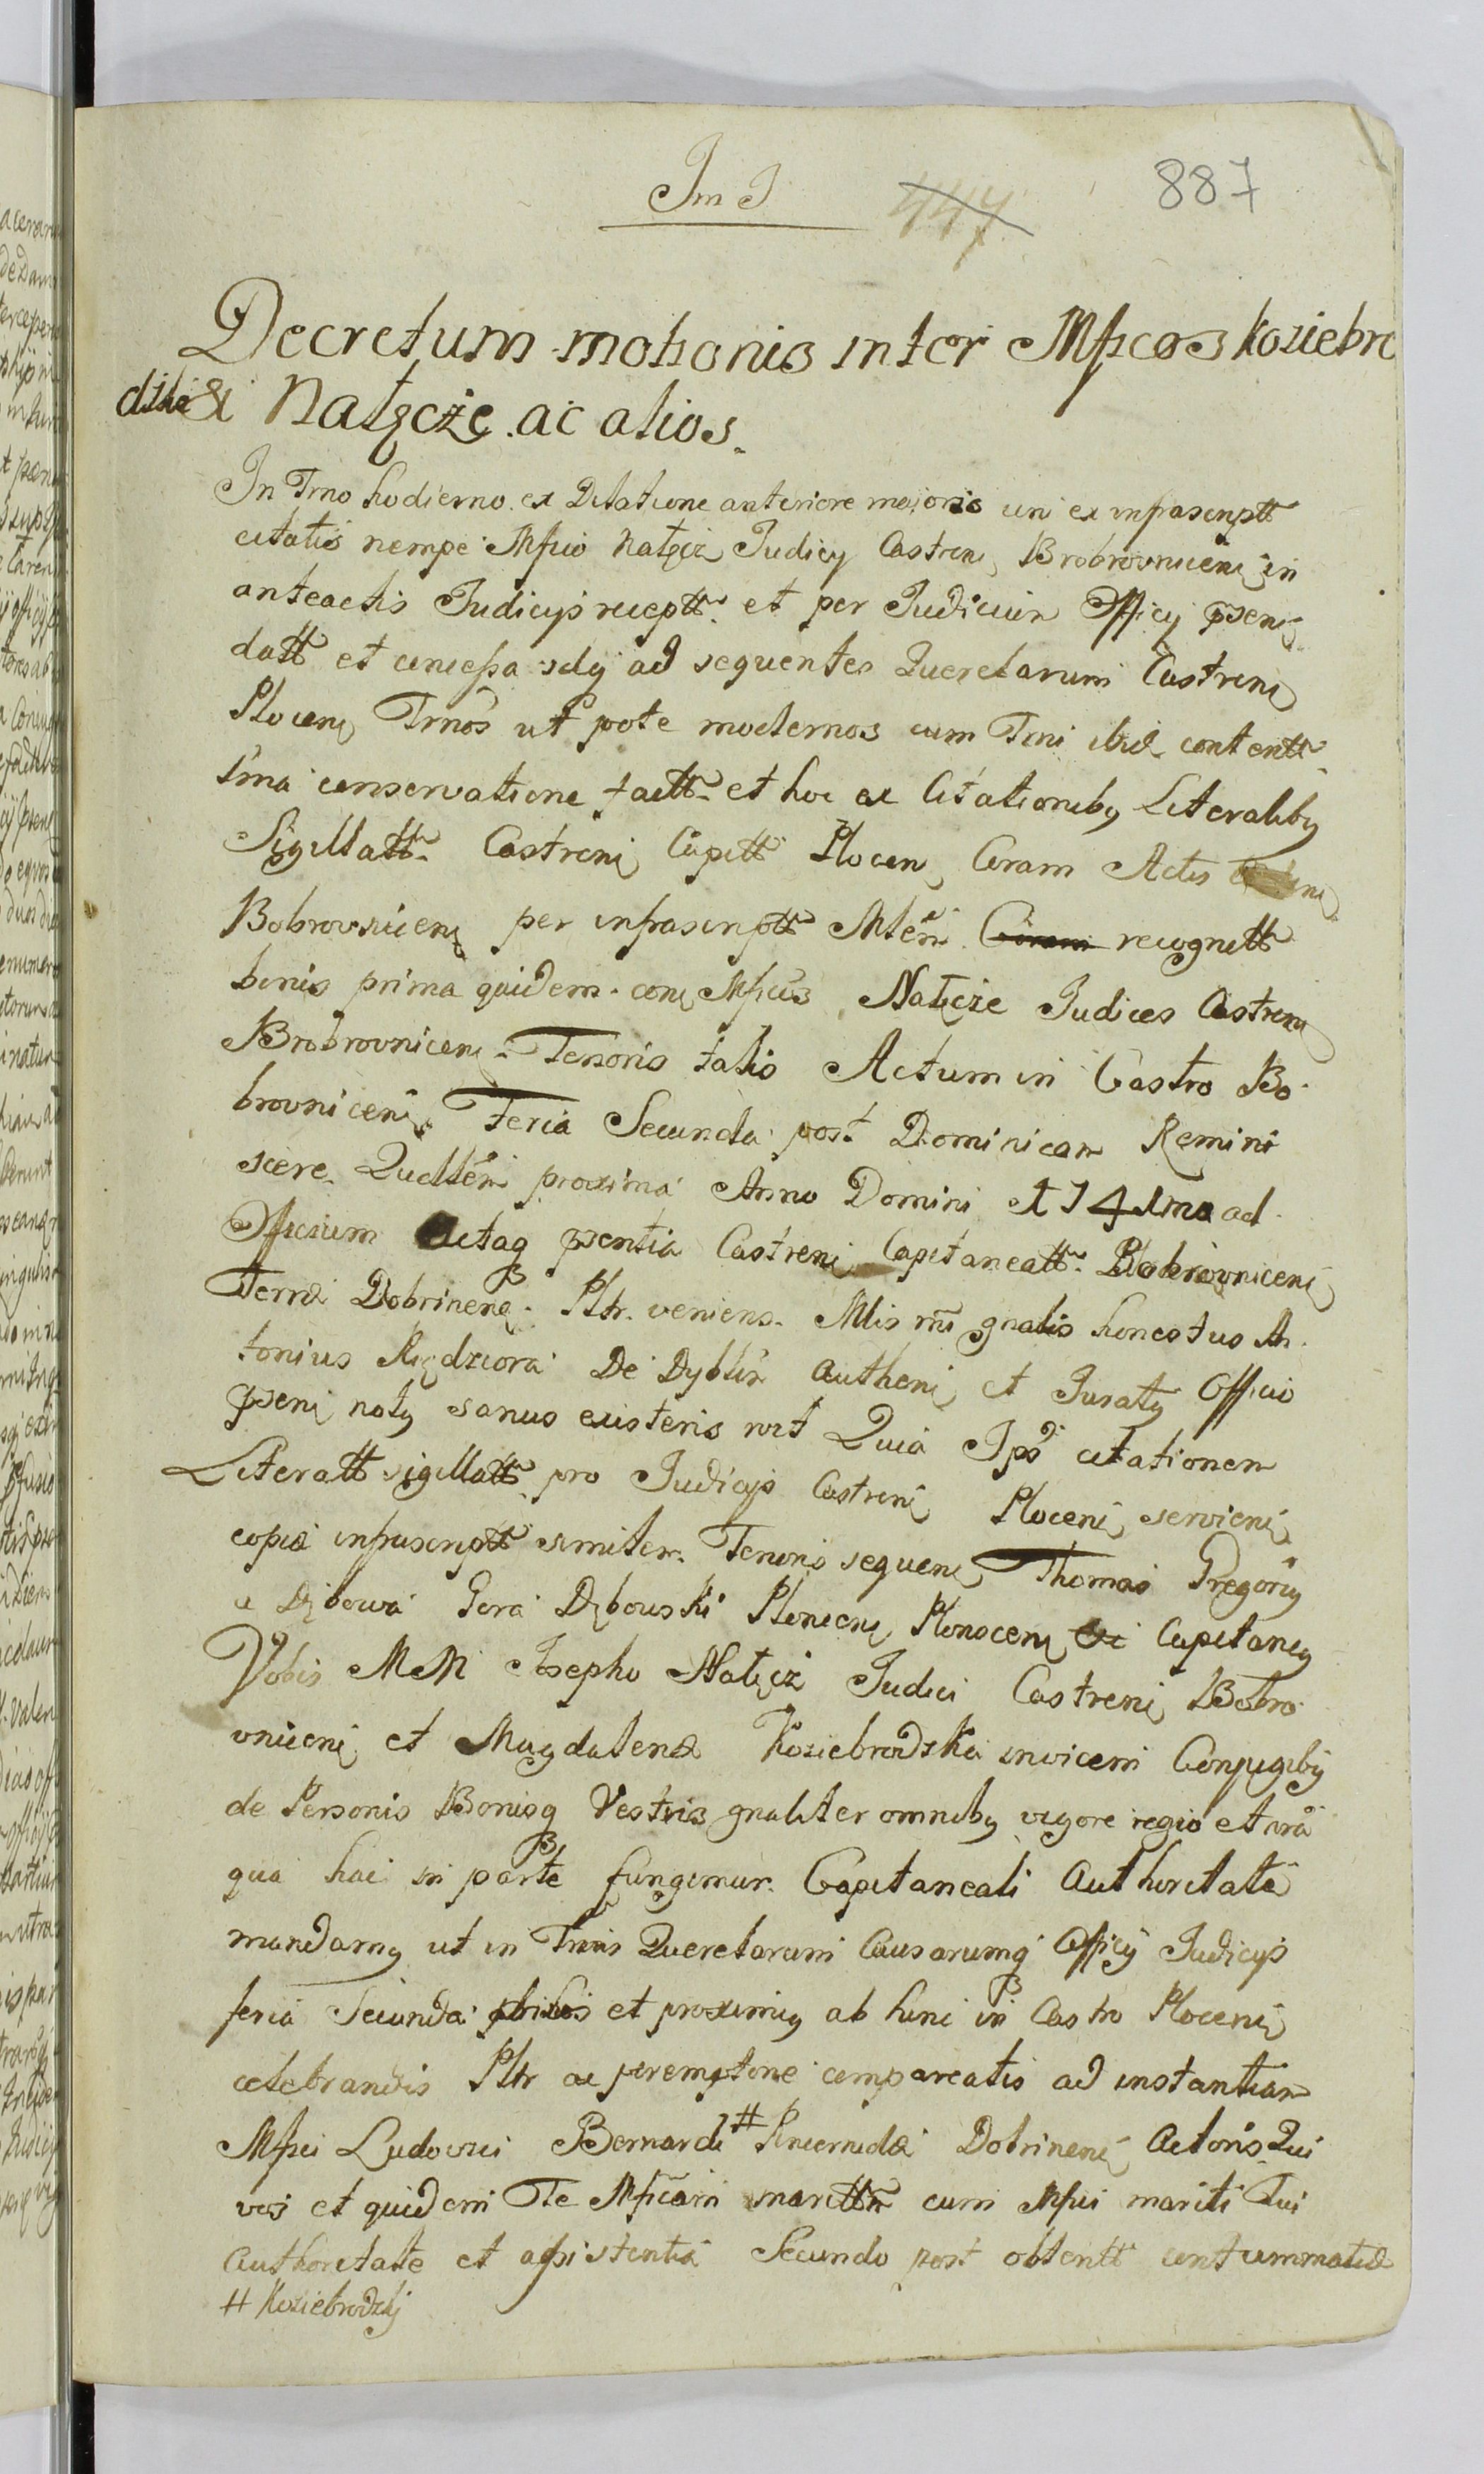 Im I
447
887
Decretum motionis inter Mfcos Koziebro
dzkie & Nałęcże ac alios
In Trno hodierno ex Dilatione anteriore majoris uni ex infrascriptt
citatis nempe Mfico Nałęcz Judicy Castren Brobrovnicen in
anteactis Judicys receptt et per Judicium Officy psens
datt et concessa sdy ad sequentes Querelarum Castrens
Plocens Trnos ut pote modernos cum Trni ibid contentt
s'ma conservatione factt et hoc ex Citationiby Literaliby
Sigillatt Castrens Capitt Plocen Coram Actis
Bobrovnicens per infrascriptt Mtem Coram recognitt
binis prima quidem cone Mficus Nałęcże Judices Castrens
Brobrovnicens Tenoris talis Actum in Castro Bo
brovnicens Feria Secunda post Dominicam Remini
scere Qudlem proxima Anno Domini 1741mo ad
Officium Actaq psentia Castrens Capitaneatt Bobrovnicens
Terræ Dobrinens Pltr veniens Mlis rni gnalis honestus An
tonius Kiędziora De Dyblin Authens et Juraty Officio
psens noty sanus existens rect Quia Ips citationem
Literatt sigillatt pro Judicys Castrens Plocens serviens
copiæ infrascriptt simiter Tenoris sequens Thomas Gregoriy
a Dębowa Gora Dębowski Plonens Plonocens Capitaney
Vobis MM Josepho Nałęcz Judici Castrens Bobro
vnicens et Magdalenæ Koziebrodzka invicem Conjugiby
de Personis Bonisq Vestris gnaliter omniby vigore regio et nra
qua hac in parte fungimur Capitaneali Authoritate
mandamy ut in Trnis Querelarum Causarumq Officy Judicys
feria Secunda et proximiy ab hinc in Castro Plocens
celebrandis Pltr ac peremptorie compareatis ad instantiam
Mfici Ludovici Bernardi # Pincernidæ Dobrinens Actoris Qui
vos et quidem Te Mficam marittm cum Mfici mariti Tui
Authoritate et assistentia Secundo post obtentt contummatiæ
# Koziebrodzky